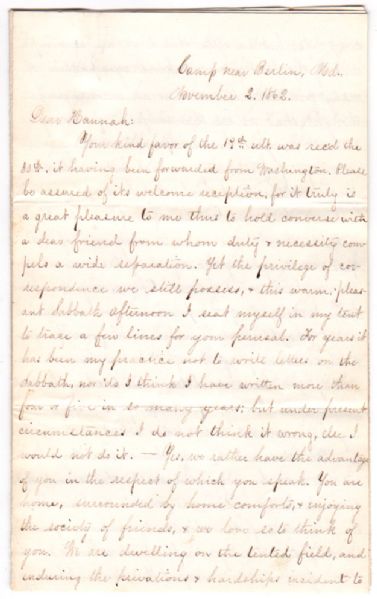 Camp near Berlin, Md.
November 2. 1862.
Dear Hannah:
Your kind favor of the 19th ult. was rec'd the
30th, it having been forwarded from Washington. Please
be assured of its welcome reception, for it truly is
a great pleasure to me thus to hold converse with
a dear friend from whom duty & necessity com-
pels a wide separation. Yet the privilege of cor-
respondence we still possess, & this warm, pleas-
ant Sabbath afternoon I seat myself in my tent
to trace a few lines for your perusal. For years it
has been my practice not to write letters on the
Sabbath, nor do I think I have written more than
four or five in so many years; but under present
circumstances I do not think it wrong, else I
would not do it. — Yes, we rather have the advantage
of you in the respect of which you speak. You are
home, surrounded by home comforts, & enjoying
the society of friends, & we love so to think of
you. We are dwelling on the tented field, and
enduring the privations & hardships incident to